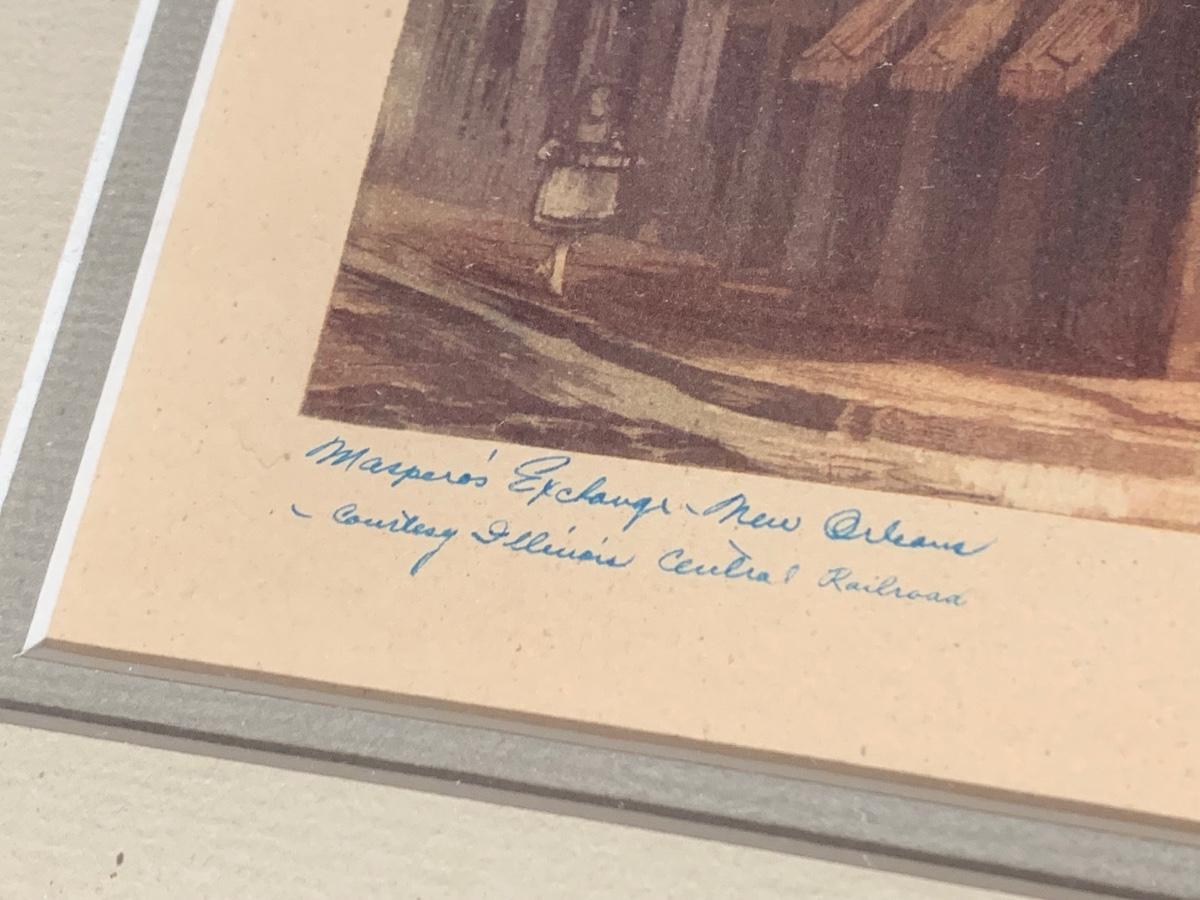 Maspero's Exchange - New Orleans
- Courtesy Illinois Central Railroad